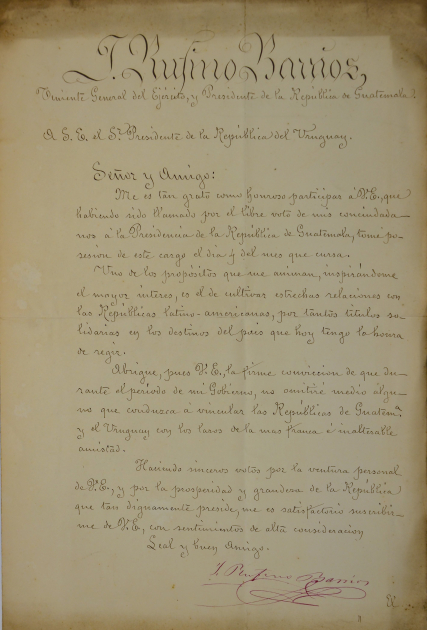 J. Rufino Barrios,
Teniente General del Ejército, y Presidente de la República de Guatemala.
A S. E. el Sr. Presidente de la República del Uruguay.
Señor y Amigo:
Me es tan grato como honroso participar á V.E., que
habiendo sido llamado por el libre voto de mis conciudada-
nos á la Presidencia de la República de Guatemala, tomé po-
sesion de este cargo el dia 4 del mes que cursa.
Uno de los propósitos que me animan, inspirándome
el mayor interes, es el de cultivar estrechas relaciones con
las Repúblicas latino-americanas, por tantos títulos so-
lidarias en los destinos del pais que hoy tengo la honra
de regir.
Abrigue, pues V.E., la firme conviccion de que du-
rante el período de mi Gobierno, no omitiré medio algu-
no que conduzca á vincular las Repúblicas de Guatema.
y el Uruguay con los lazos de la mas franca é inalterable
amistad.
Haciendo sinceros votos por la ventura personal
de V.E., y por la prosperidad y grandeza de la República
que tan dignamente preside, me es satisfactorio suscribir-
me de V.E., con sentimientos de alta consideracion
Leal y buen Amigo.
J. Rufino Barrios